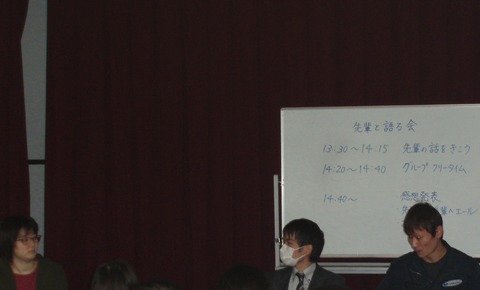 先輩と語る会
13:30〜14:15 先輩の話をきこう
14:20〜14:40 グループフリータイム
14:40〜 感想発表
エール